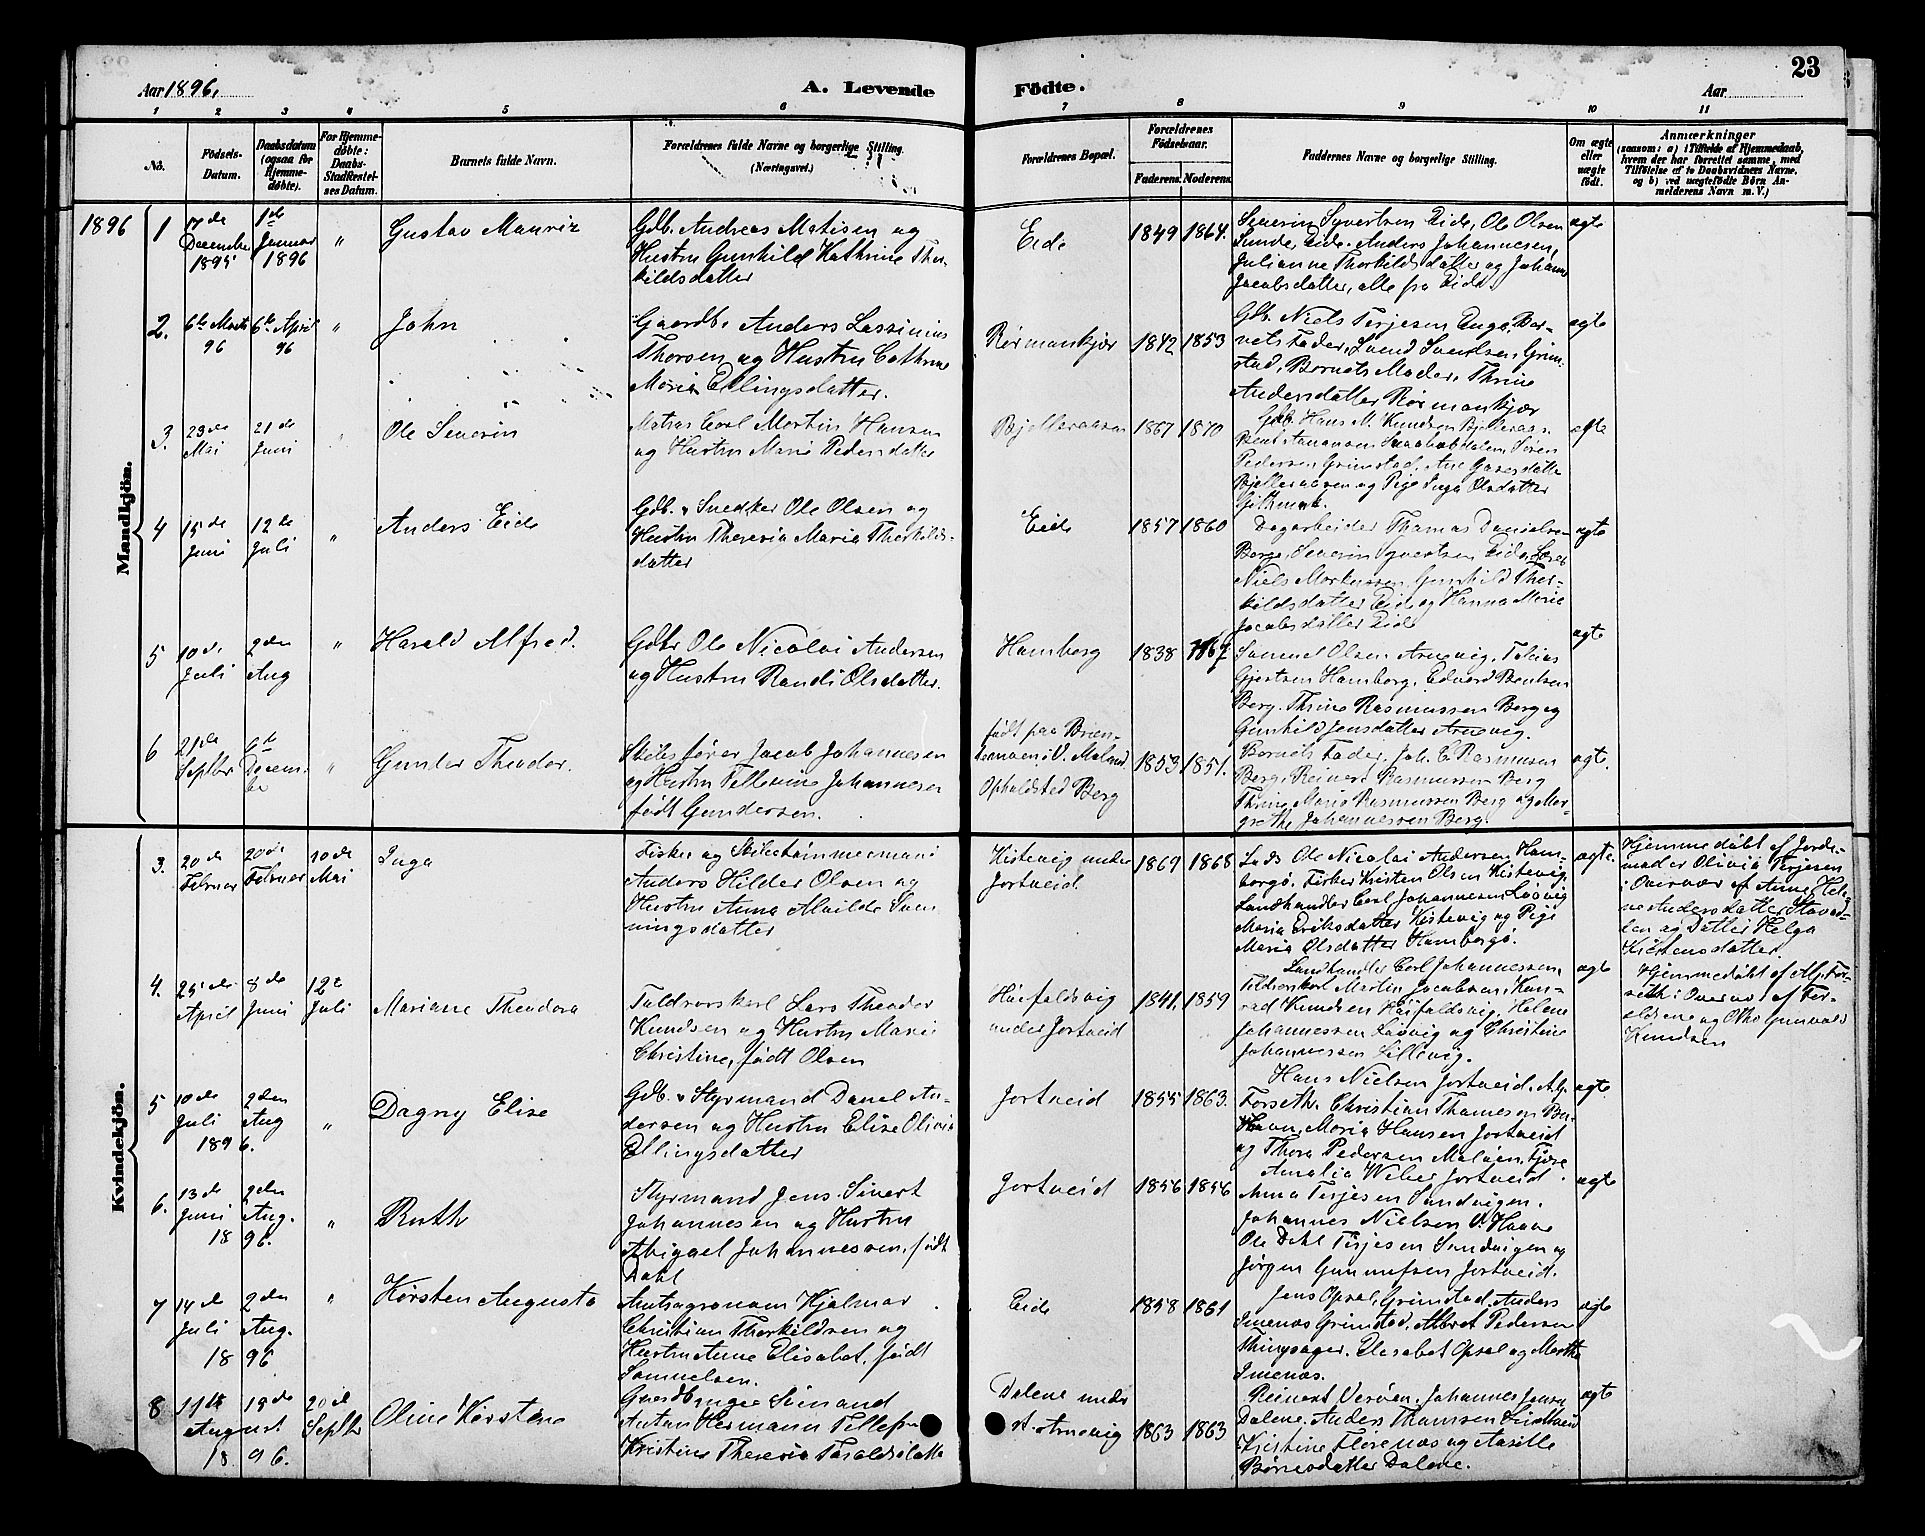 23
Aar 1896.
A. Levende Födte.
Aar
1 2 3 4 5 6 7 8 9 10 11
No.
Födsels-
Datum.
Daabsdatum
(ogsaa for
Hjemme-
döbte).
For Hjemme-
döbte:
Daabs-
Stadfæstel-
ses Datum.
Barnets fulde Navn.
Forældrenes fulde Navne og borgerlige Stilling.
(Næringsvei.)
Forældrenes Bopæl.
Forældrenes
Födselsaar.
Faderens. Moderens.
Faddernes Navne og borgerlige Stilling.
Om ægte
eller
uægte
født.
Anmærkninger
(saasom: a) i Tilfælde af Hjemmedaab,
hvem der har forrettet samme, med
Tilföielse af to Daabsvidners Navne,
og b) ved uægtefödte Börn An-
melderens Navn m. V.)
Mandkjön.
1896
1
7de
December
1895
1ste
Januar
1896
"
Gustav Mauriz
Gdb. Andreas Matisen og
Hustru Gunhild Kathrine Ther-
kildsdatter
Eide
1849 1864.
Severin Syvertsen Eide, Ole Olsen
Sunde, Eide. Anders Johannesen,
Julianne Thorkildsdatter og Johanne
Jacobsdatter, alle fra Eide.
ægte
2.
6te Marts
96
6te April
96
"
John
Gaardb. Anders Lassinius
Thorsen og Hustru Cathrine
Maria Ellingsdatter.
Rørmankjær
1842 1853
Gdb. Niels Terjesen Enge, Bar-
nets Fader, Svend Svendsen Grim-
stad, Barnets Moder, Thrine
Andersdatter Rørmankjær
ægte
3.
23de
Mai
21de
Juni
"
Ole Severin
Matros Carl Martin Hansen
og Hustru Marie Pedersdatter
Bjelleraasen
1867 1870
Gdb. Hans M. Knudsen Bjelleraas.
Pedersen Grimstad,
Bjelleraasen og Pige Inga Olsdatter
ægte
4
15de
Juni
12te
Juli
"
Anders Eide
Gdb. & Snedker Ole Olsen og
Hustru Theresia Maria Therkilds-
datter
Eide
1857 1860
Dagarbeider Thomas Danielsen
Berge, Severin Syvertsen Eide, Lærer
Niels Markussen, Gunhild Ther-
kildsdatter Eide og Hanna Marie
Jacobsdatter Eide
ægte
5
10de
Juli
2den
Aug
"
Harald Alfred.
Gdbr Ole Nicolai Andersen
og Hustru Randi Olsdatter.
Hamberg
1838 1867
Samuel Olsen Arnevig, Tobias
Gjertsen Hamberg, Edvard Bentsen
Berg. Thrine Rasmussen Berg og
Gunhild Jensdatter Arnevig.
ægte
6
21de
Septbr
6te
Decem-
ber
"
Gunler Theodor.
Skibsfører Jacob Johannesen
og Hustru Tellesine Johannesen
født Gundersen.
født paa
V. Moland
Opholdsted Berg
1853 1851.
Barnets Fader, Joh. C. Rasmussen
Berg, Reinert Rasmussen Berg
Thrine Marie Rasmussen Berg og Mar-
grethe Johannessen Berg.
ægte.
Kvindekjön.
3.
20de
Februar
20de
Februar
10de
Mai
Inga
Fisker og Skibstømmermand
Anders Hilder Olsen og
Hustru Anna Alvilde Sven-
ningsdatter
Kistevig under
Jortveid.
1869 1868
Lods Ole Nicolai Andersen Ham-
borgø. Fisker Kristen Olsen Kistevig,
Landhandler Carl Johannesen Løøvig
Maria Eriksdatter Kistevig og Pige
Maria Olsdatter Hamborgø.
ægte.
Hjemmedøbt af Jorde-
moder Olivia Terjesen
i Overvær af Anne Hele-
ne Andersdatter
og Datter Helga
Kristensdatter.
4.
25de
April
8de
Juni
12te
Juli
Mariane Theodora
Toldrorskarl Lars Theodor
Knudsen og Hustru Marie
Christine, født Olsen
Håifaldsvig
under Jortveid
1841. 1859
Landhandler Carl Johannessen,
Toldrorskarl Martin Jacobsen, Kon-
rad Knudsen Håifaldsvig, Helene
Johannessen Løøvig og Christine
Johannessen Lillevig.
ægte
Hjemmedøbt af Alf. For-
seth i Overvær af For-
ældrene og Otto Gunvald
Knudsen
5
10de
Juli
1896.
2den
Aug
"
Dagny Elise
Gdb. & Styrmand Danel An-
dersen og Hustru Elise Olivia
Ellingsdatter
Jortveid
1855 1863.
Hans Nielsen Jortveid, Alf.
Forseth. Christian Thomesen
Maria Hansen Jortveid
og Thora Pedersen Moløen, Fjære
ægte
6.
13de
Juni
1896.
2den
Aug.
"
Ruth
Styrmand Jens Sivert
Johannesen og Hustru
Abigael Johannessen, født
Dahl
Jortveid
1856 1856
Amalia Weber Jortveid.
Anna Terjesen Sandvigen.
Johannes Nielsen V. Haave
Ole Dahl Terjesen Sandvigen og
Jørgen Gunnufsen Jortveid.
ægte
7
14de
Juli
1896
2den
Aug.
"
Kirsten Augusta
Amtsagronom Hjalmar
Christian Therkildsen og
Hustru Anne Elisabet, født
Samuelsen.
Eide
1858 1861
Jens Opsal, Grimstad. Anders
Imenæs Grimstad. Albret Pedersen
Thingsager. Elisabet Opsal og Marthe
Imenæs.
ægte
8
11te
August
1896.
19de
20de
Septbr
Oline Kirstine
Gaardbruger Sømand
Anton Hermann Tellefsen
Kristine Theresia Taraldsdatter
Dalene under
St. Arnevig
1863 1863
Reinert Verøen, Johannes Jensen
Dalene. Anders Thomsen
Kristine Florenæs og Aasille
Børresdatter Dalene.
ægte